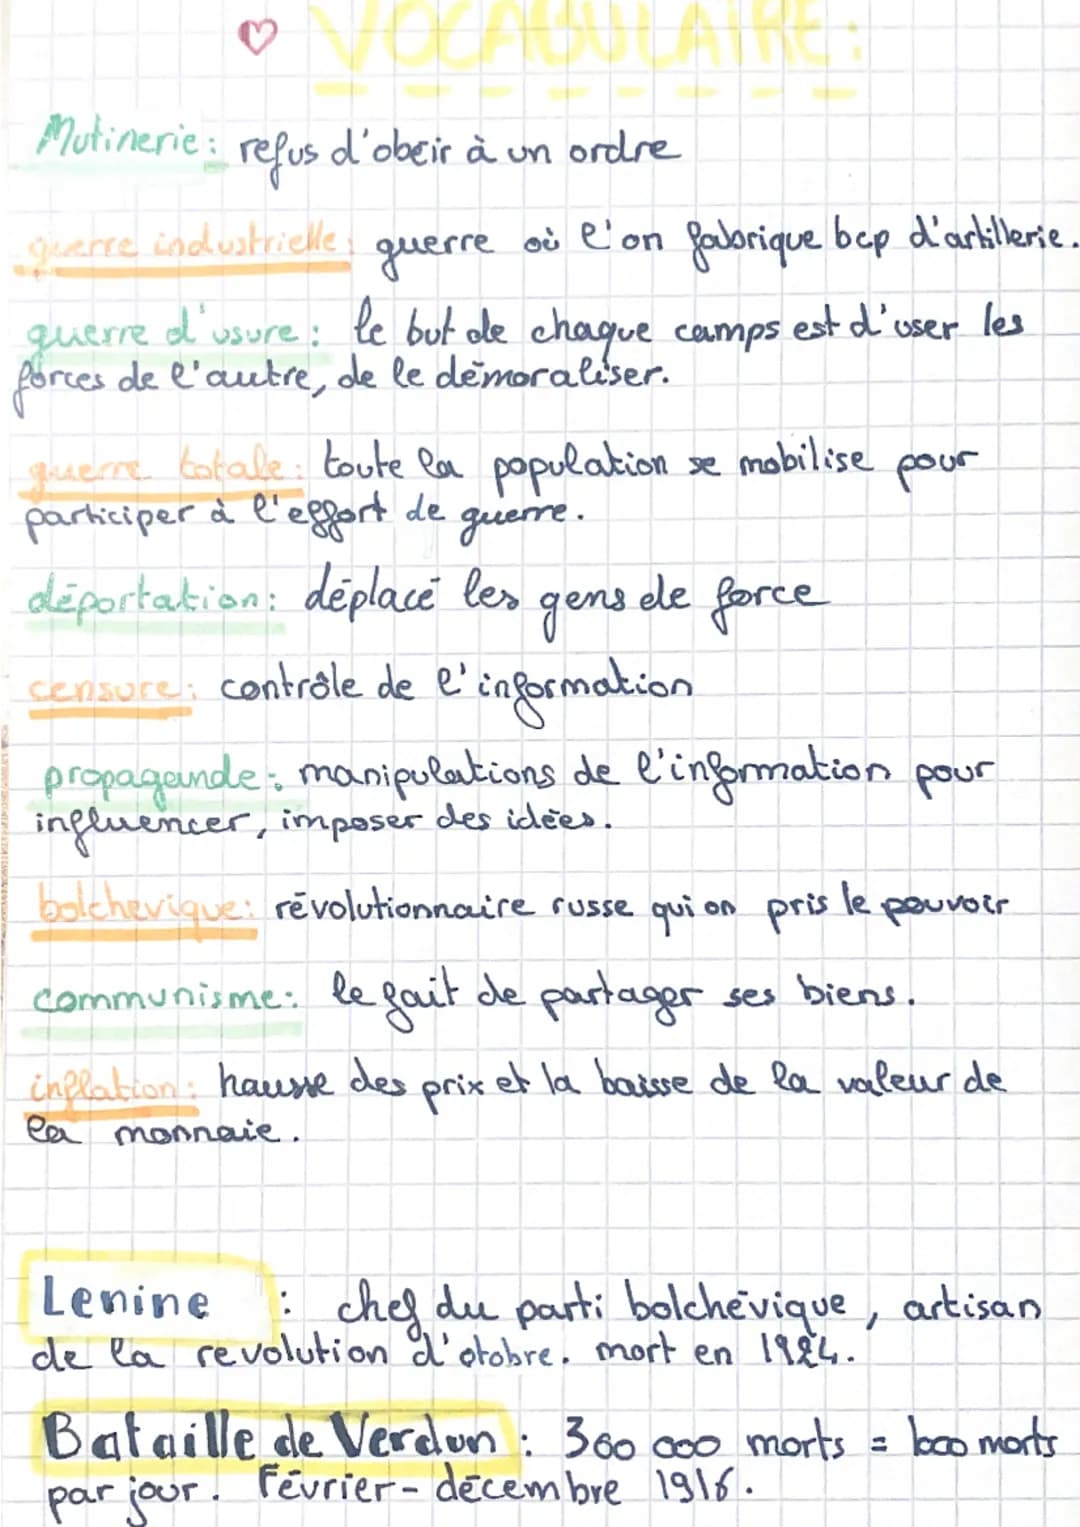 VOCABULAIRE:
Mutinerie: refus d'obeir à un ordre
guerre industrielle: guerre où l'on fabrique bcp d'artillerie.
guerre d'usure: le but de chaque camps est d'user les
forces de l'autre, de le démoraliser.
guerre totale: toute la population se mobilise pour
participer à l'effort de guerre.
déportation: déplacé les gens de force
censure: contrôle de l'information
propagande: manipulations de l'information pour
influencer, imposer des idées.
bolchevique: révolutionnaire russe qui on pris le pouvoir
communisme: le fait de partager ses biens.
inflation: hausse des prix et la baisse de la valeur de
la monnaie.
Lenine : chef du parti bolchévique, artisan
de la revolution d'otobre. mort en 1924.
Bataille de Verdun: 300 000 morts = 1000 morts
par jour. Février - décembre 1916.